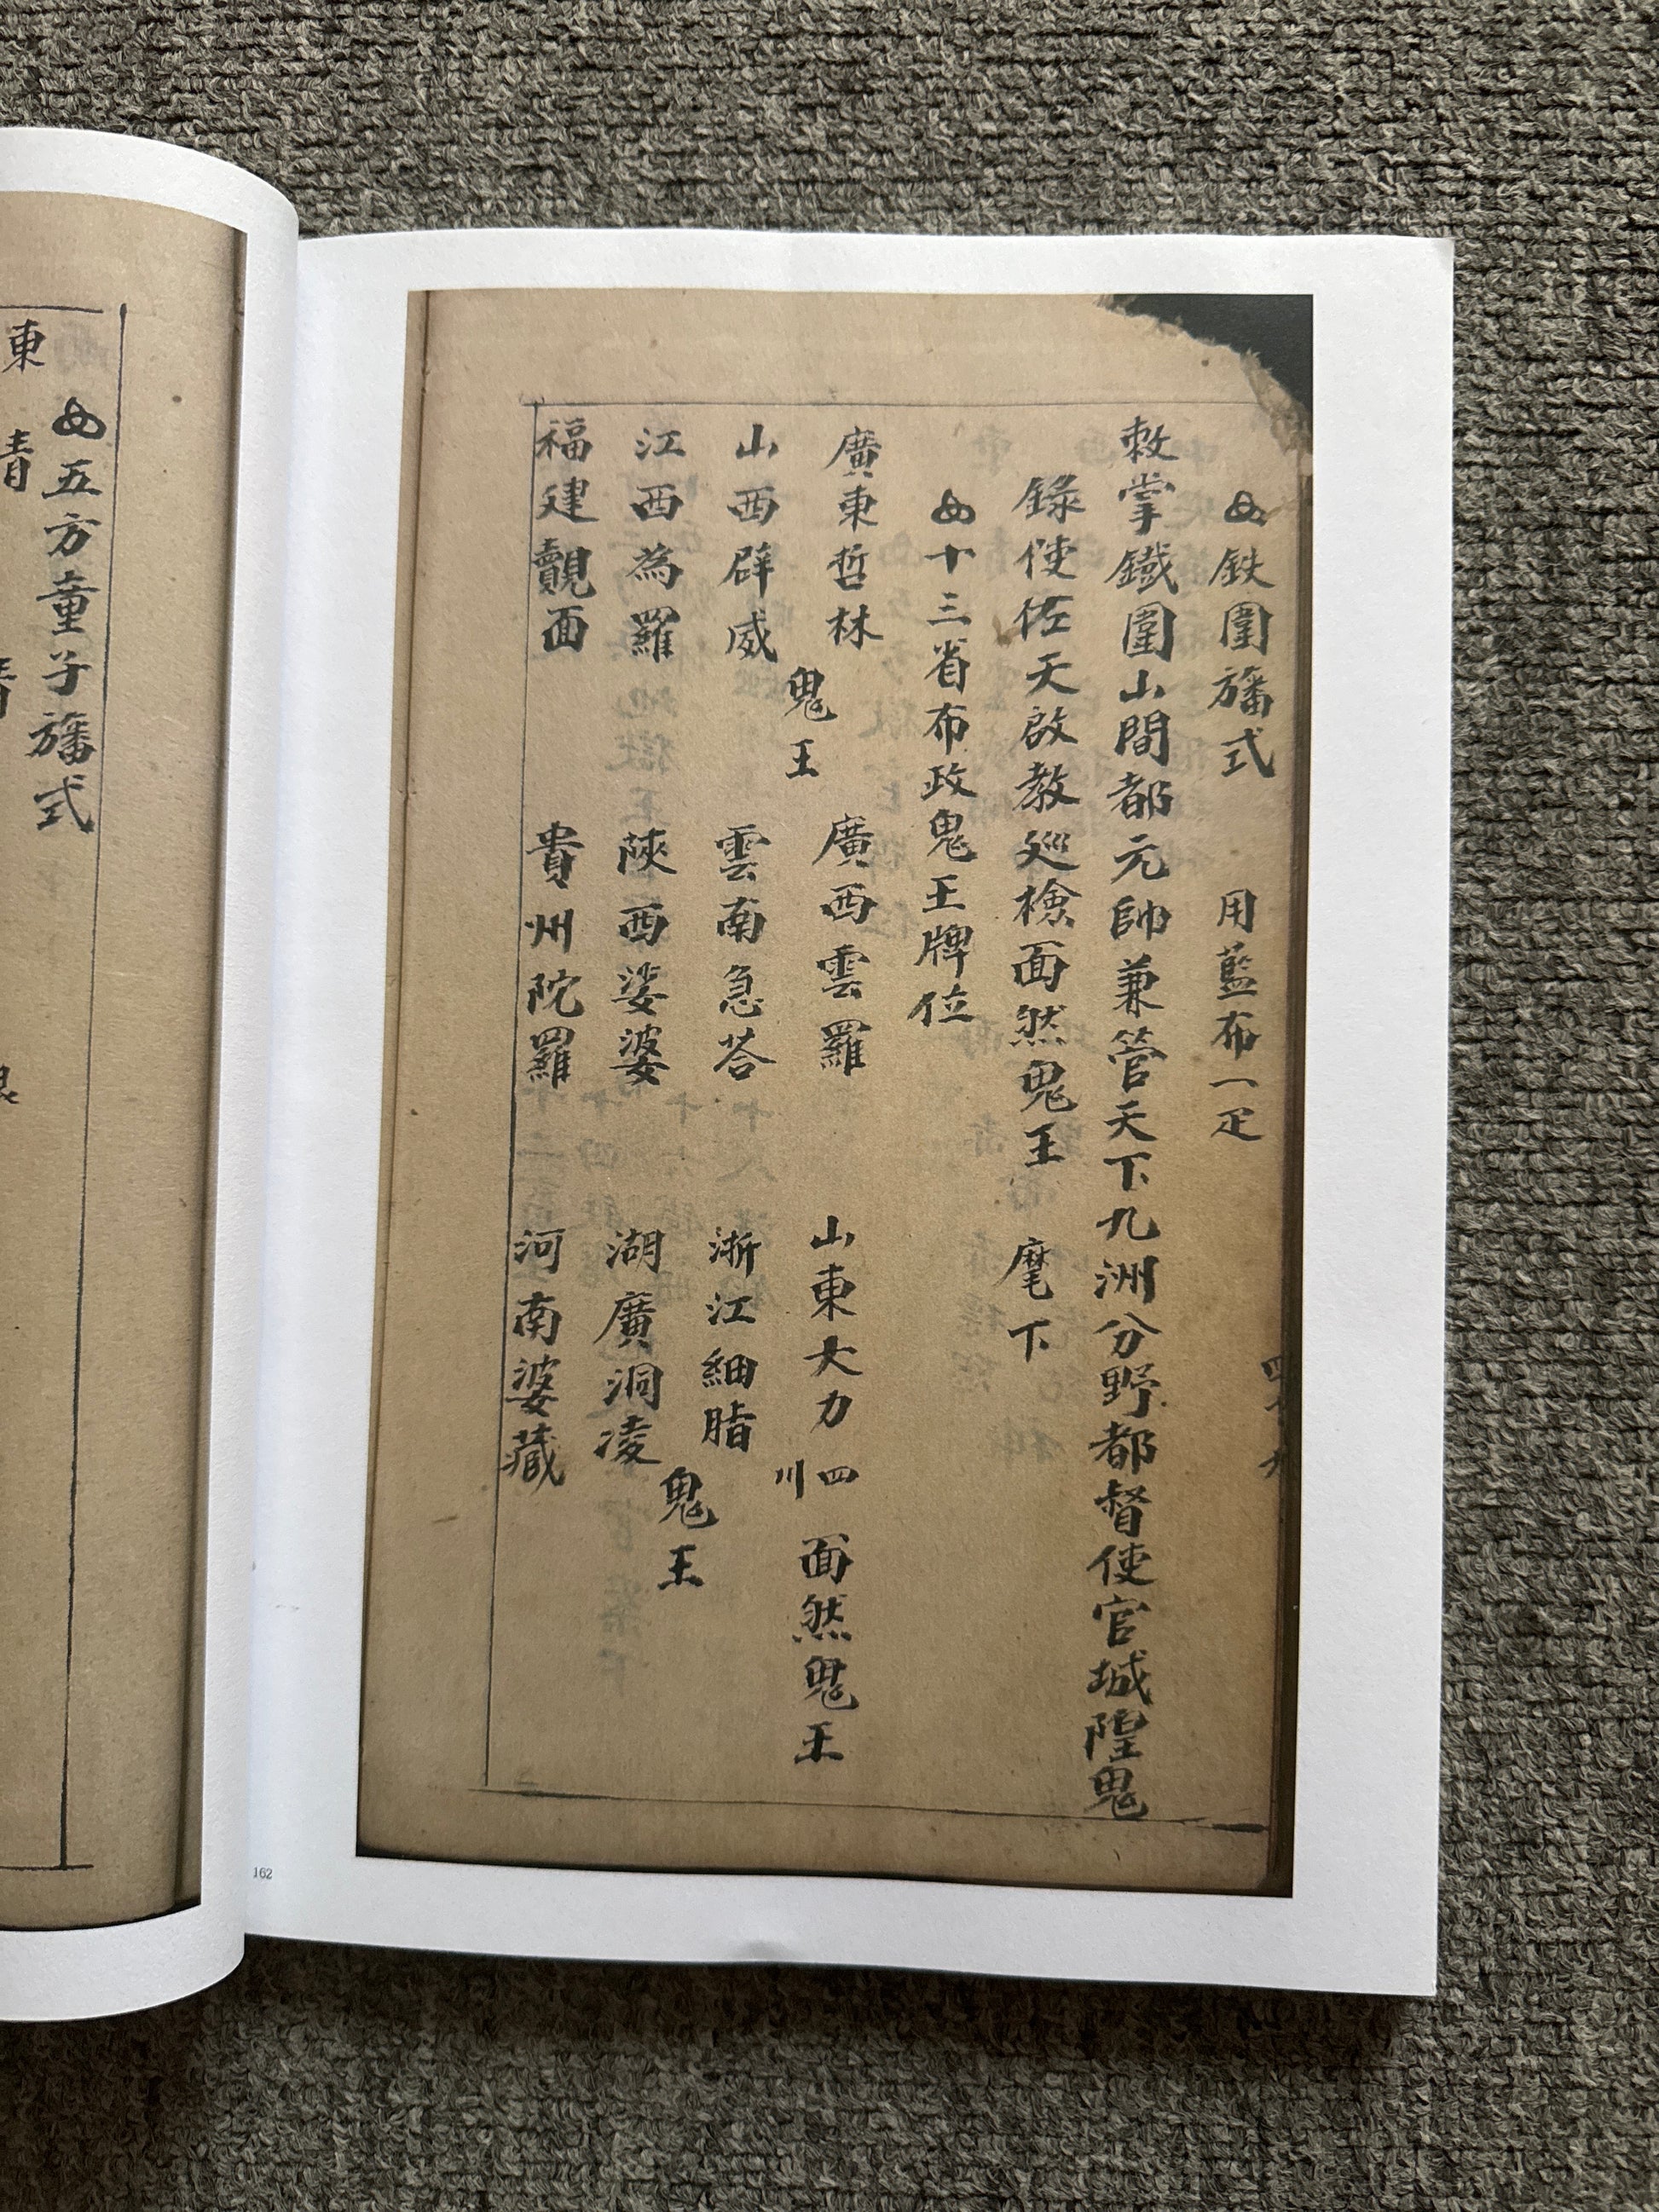 鉄圍旛式 用藍布一疋
敕掌鐵圍山間都元帥兼管天下九洲分野都督使官城隍鬼
錄使佐天啟教巡檢面然鬼王 麾下
十三省布政鬼王牌位
廣東哲林 廣西雲羅 山東大力 四川 面然鬼王
鬼王
山西辟威 雲南急荅 浙江細脂
鬼王
江西為羅 陝西娑婆 湖廣洞凌
福建覿面 貴州陀羅 河南婆藏
五方童子旛式
東 青
162